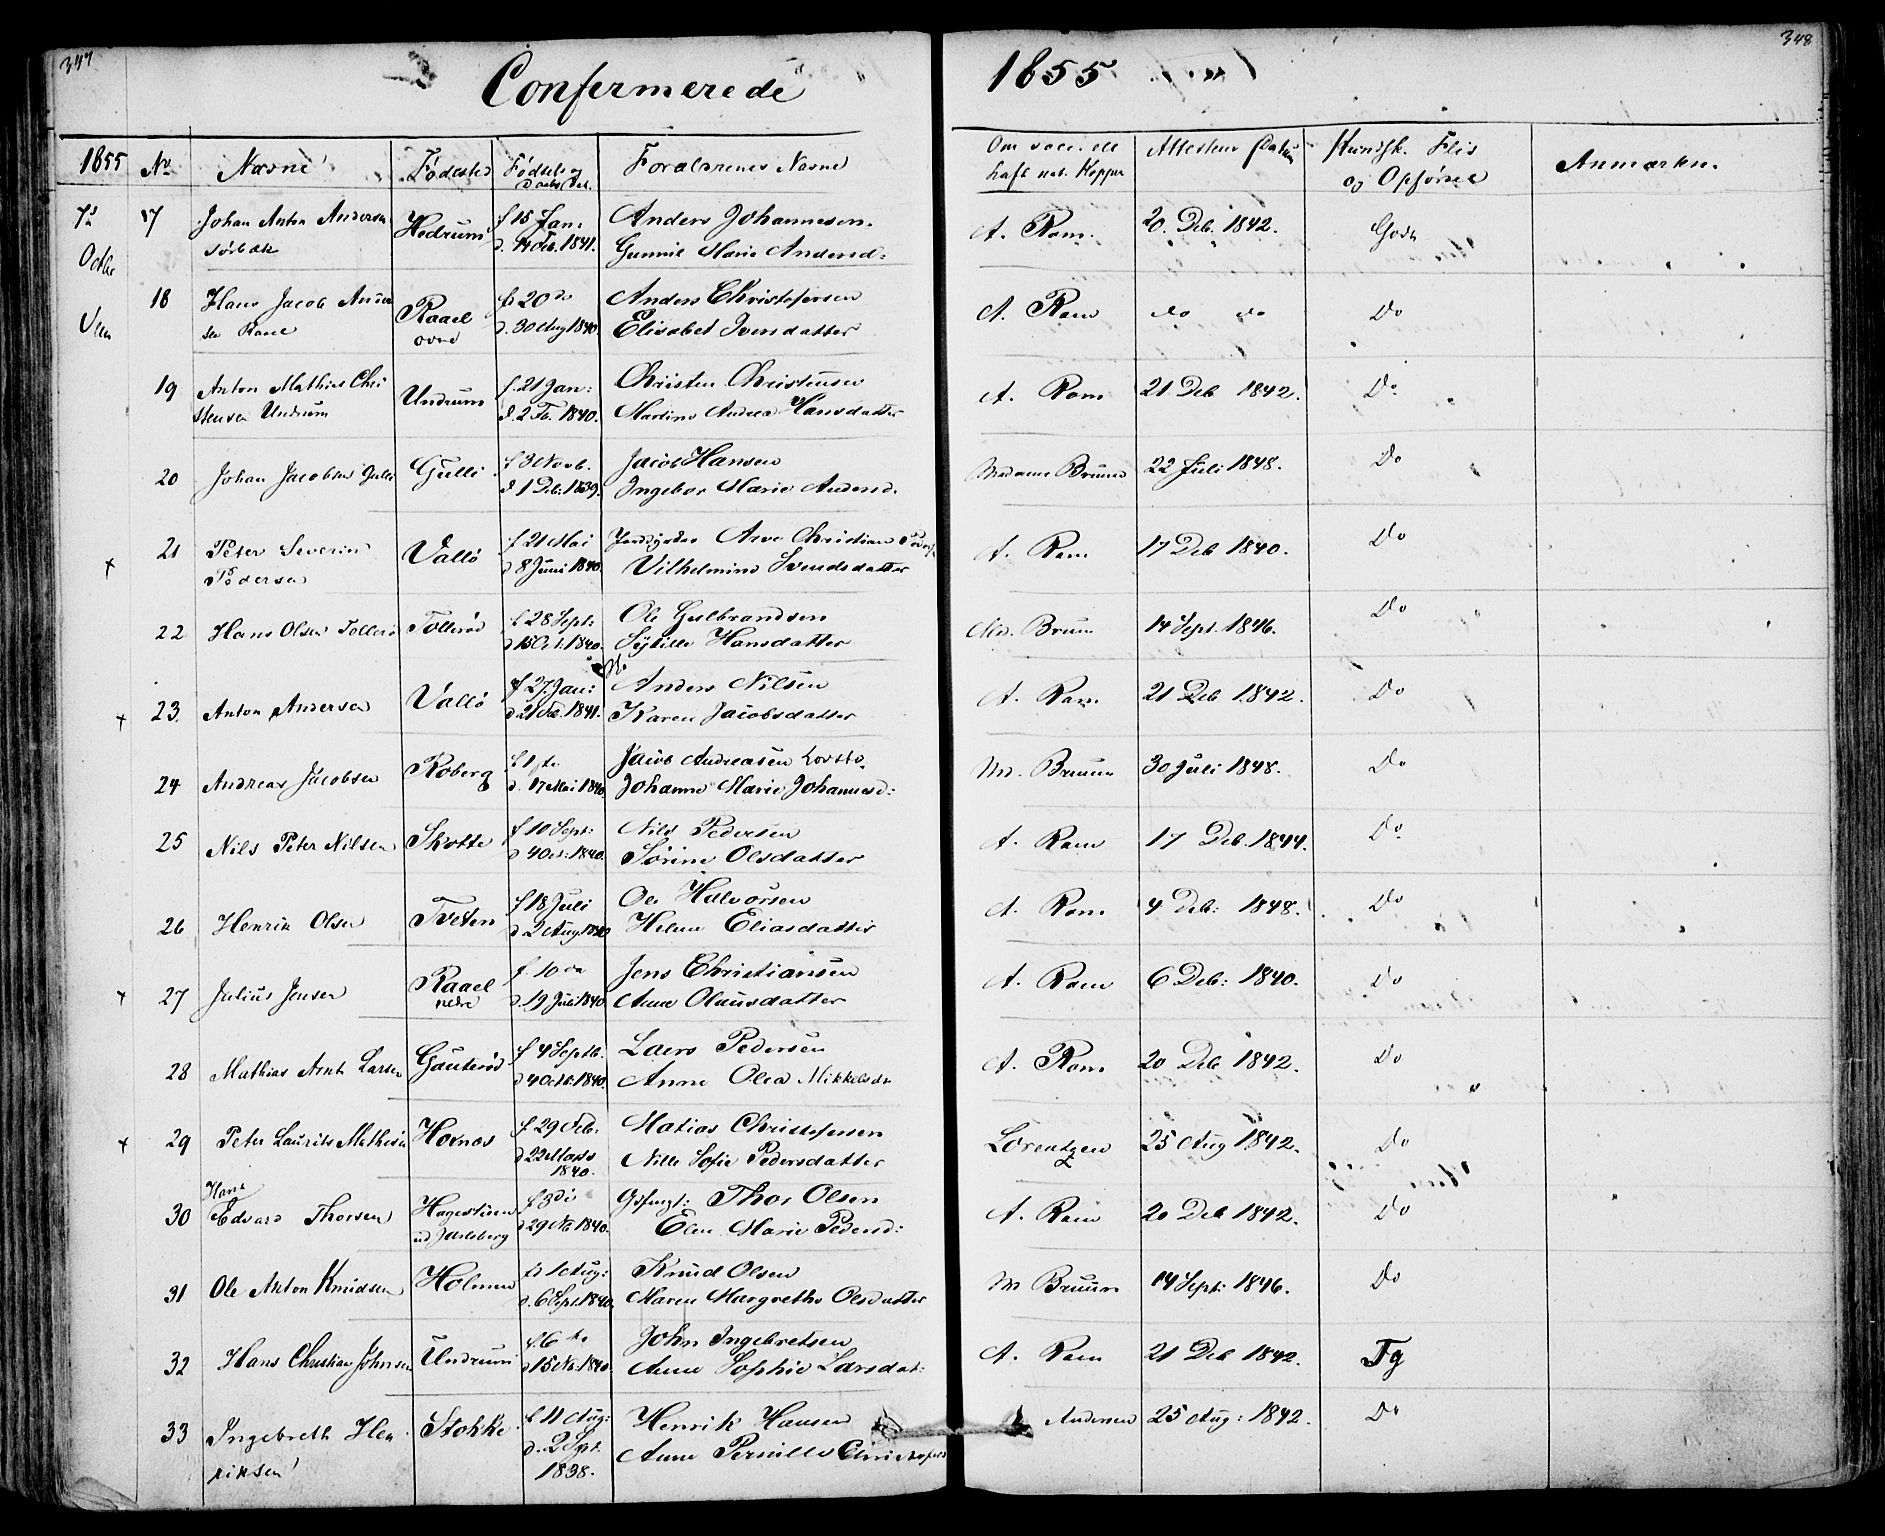 347
348
Confermerede 1855
1855 No Navne Fødested Fødsels og Daabs Dat. Forældrenes Navne Om vacc. ell. haft nat. Kopper Attestens Datum Kundsk. Flid og Opførsel Anmærkn.
7de Octbr
17 Johan Anton Andersen Hedrum f 15 Jan: Anders Johannesen. A. Ram. 20. Deb. 1842. Godt
Sørbæk d. 14 Feb. 1841. Gunnil Marie Andersd:
18 Hans Jacob Ander Raael f. 20 de Anders Christofersen A. Ram do do Do
sen Raael øvre d. 30 Aug 1840. Elisabet Iversdatter
19 Anton Mathias Chri Undrum f. 21 Jan: Christen Christensen A. Ram 21 Deb 1842. Do
stensen Undrum d. 2 Fb. 1840. Martine Andrea Hansdatter
20 Johan Jacobsen Gulli Gulli f 3 Novb. Jacob Hansen Madame Bruun 22 Juli 1848. Do
d 1 Deb. 1839. Ingebor Marie Andersd.
21 Peter Severin Vallø f 21 Mai Arve Christian Peders A. Ram 17 Deb 1840. Do
Pedersen d 8 Juni 1840. Vilhelmine Svendsdatter
22 Hans Olsen Tollerø Tollerød f. 28 Sept: Ole Gulbrandsen Md. Bruun 14 Sept. 1846. Do
d 15 Oct: 1840. Sybille Hansdatter
23. Anton Andersen Vallø f 27. Jan: Anders Nilsen A. Ram 21 Deb 1842. Do
d 21 Feb. 1841. Karen Jacobsdatter
24 Andreas Jacobsen Roberg f 1ste Jacob Andreasen Md. Bruun 30 Juli 1848. Do
d. 17 Mai 1840 Johanne Marie Johannesd:
25 Nils Peter Nilsen Skotte f 10 Sept: Nils Pedersen A. Ram 17 Deb. 1844. Do
d 4 Oct. 1840. Sørine Olsdatter
26 Henrik Olsen Tveten f 18 Juli Ole Halvorsen A. Ram 4 Deb: 1848. Do
d 2 Aug 1840 Helene Eliasdatter
27 Julius Jensen Raael f. 10 de Jens Christiansen A. Ram 6 Deb: 1840. Do
nedre d. 19 Juli 1840 Anne Olausdatter
28 Mathias Arnt Larsen Gauterød f 4 Septb. Laers Pedersen A. Ram 20 Deb 1842. Do
d 4 Octb. 1840. Anne Olea Mikkelsdr
29 Peter Laurits Mathisen Hornes f 29 Feb: Matias Christofersen Lorentzen 25 Aug 1842. Do
d 22 Marts 1840. Nille Sofie Pedersdatter
Hans
30 Edvard Thorsen f 3 di Thor Olsen A. Ram 20 Deb 1842. Do
ved Jarlsberg d 29 No 1840. Elen Marie Pedersd:
31 Ole Anton Knudsen Holmen f. 1 Aug: Knud Olsen M Bruun 14 Sept: 1846. Do
d. 6 Sept. 1840. Maren Margrethe Olsdatter
32 Hans Christian Johnsen Undrum f. 6 te John Ingebretsen A. Ram 21 Deb 1842. Tg
d 15 No. 1840. Anne Sophie Larsdat:
33 Ingebreth Hen Stokke f. 11 Aug: Henrik Hansen Andersen 25 Aug: 1842. Do
riksen d. 2 Sept. 1838. Anne Pernille Christofers